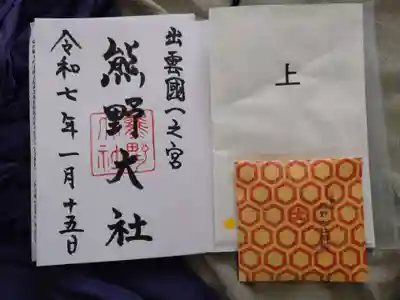 出雲國一之宮
熊野大社
令和七年一月十五日
上